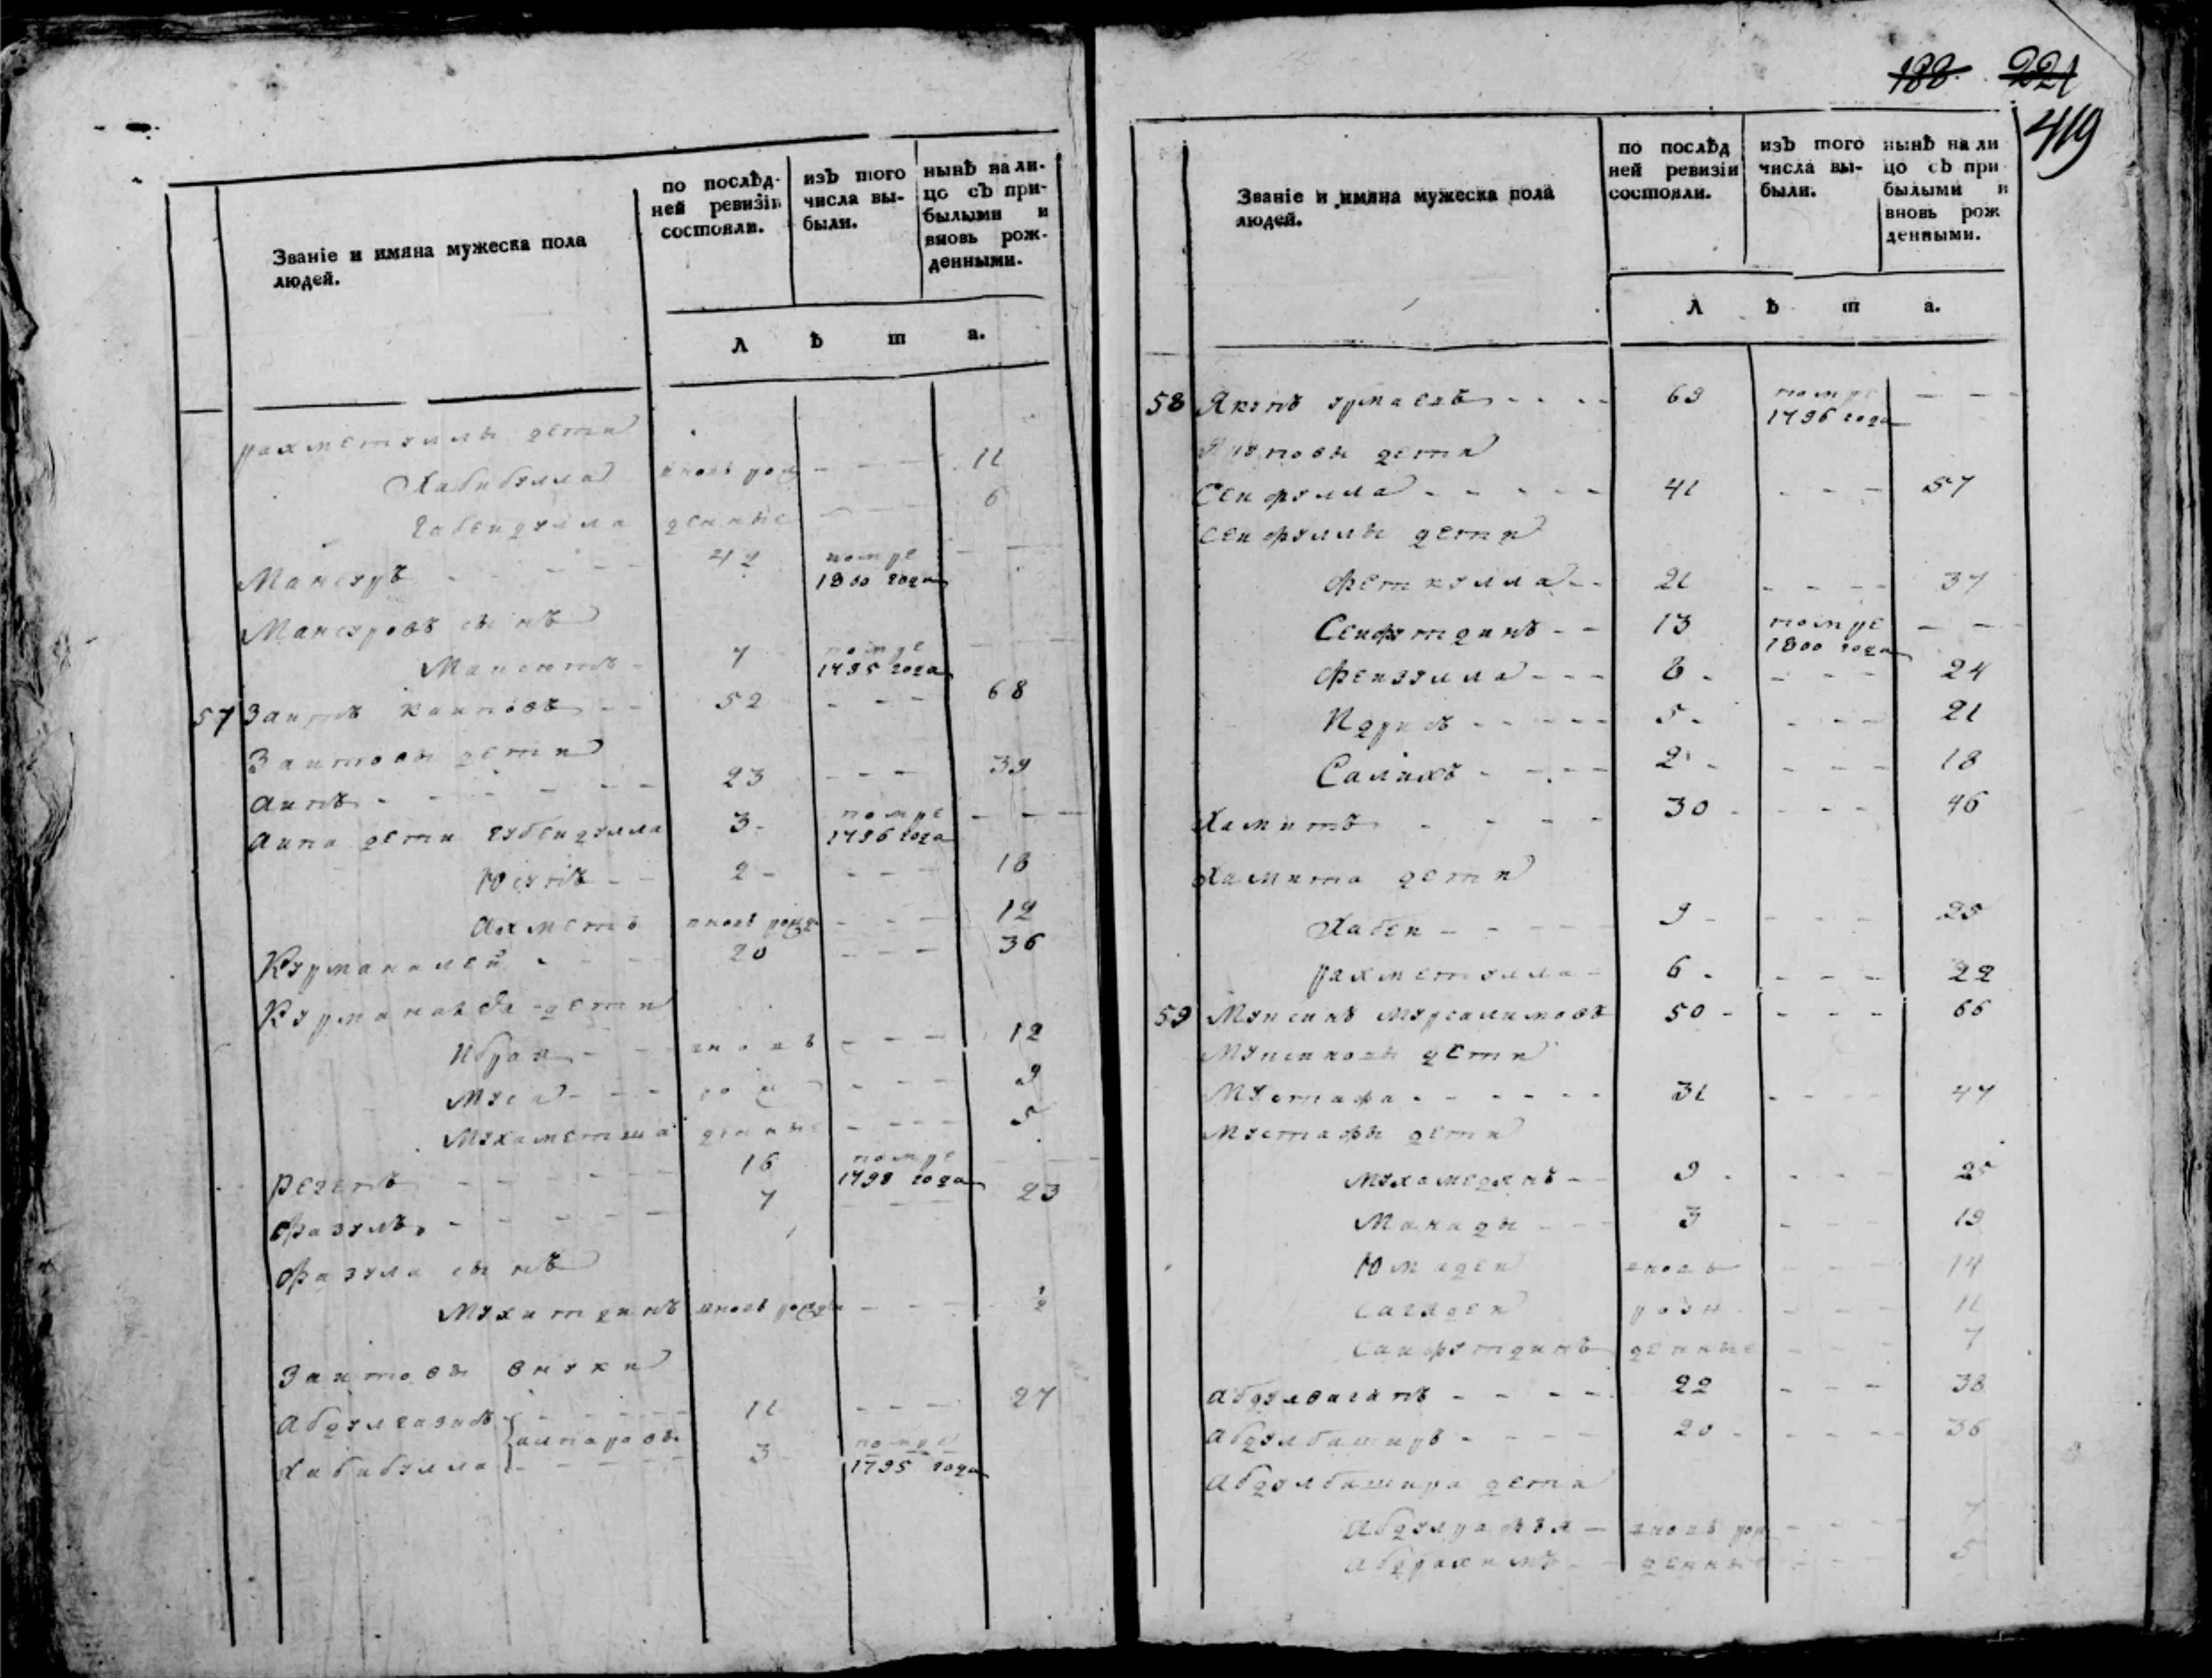 Званіе и имяна мужеска пола
людей.
по послѣд-
ней ревизіи
состояли.
изъ того
числа вы-
были.
нынѣ на ли-
цо съ при-
былыми и
вновь рож-
денными.
Л ѣ т а.
рахметуллы дети
Хабибулла вновь рож - - - 11
Габейдулла денные - - - 6
Мансуръ - - - - 42 помре - -
1800 года
Мансуровъ сынъ
7 помре - -
1795 года
57 Заитъ - - 52 - - - 68
Заитовы дети
Аипъ - - - - - - 23 - - - 39
Аипа дети Губейдулла 3 - помре - - -
1796 года
Юсупъ - - 2 - - - - 18
Ахметъ вновь рожд - - - 12
Курманалей - - - 20 - - - 36
дети
вновь - - - 12
Муса - - - рож - - - 9
Мухаметша денные - - - - 5
Резепъ - - - - - - 16 помре - -
1798 года
Фазулъ - - - - - 7 - - - 23
Фазула сынъ
Мухитдинъ вновь рожден - - - ½
Заитовы внуки
- - - - - 11 - - - 27
Хабибулла - - - - - 3 помре
1795 года
188 221
419
Званіе и имяна мужеска пола
людей.
по послѣд
ней ревизіи
состояли.
изъ того
числа вы-
были.
нынѣ на ли
цо съ при
былыми и
вновь рож
денными.
Л ѣ т а.
58 Якупъ - - - - 69 помре - - -
1796 года
Якуповы дети
Сейфулла - - - - - 41 - - - 57
Сейфуллы дети
Феткулла - - 21 - - - - 37
Сейфутдинъ - - 13 помре - - -
1800 года
Фейзулла - - - 8 - - - - 24
Идрисъ - - - - - 5 - - - - 21
Салихъ - - - - 2 - - - - - 18
Хамитъ - - - - 30 - - - - 46
Хамита дети
Хабей - - - - 9 - - - - 25
рахметулла - 6 - - - - 22
59 Муксинъ Мурсалимовъ 50 - - - - 66
дети
Мустафа - - - - - - 31 - - - - 47
Мустафы дети
Мухамедянъ - - 9 - - - 25
Манады - - - 3 - - 19
Юмадей вновь - - - 14
Сагадей рож - - - 11
Сайфутдинъ денные - - - 7
Абдулвагапъ - - - - 22 - - - 38
Абдулбаширъ - - - - 20 - - - - - 36
Абдулбашира дети
- вновь рож - - - - 7
Абдрахимъ - - денные - - 5